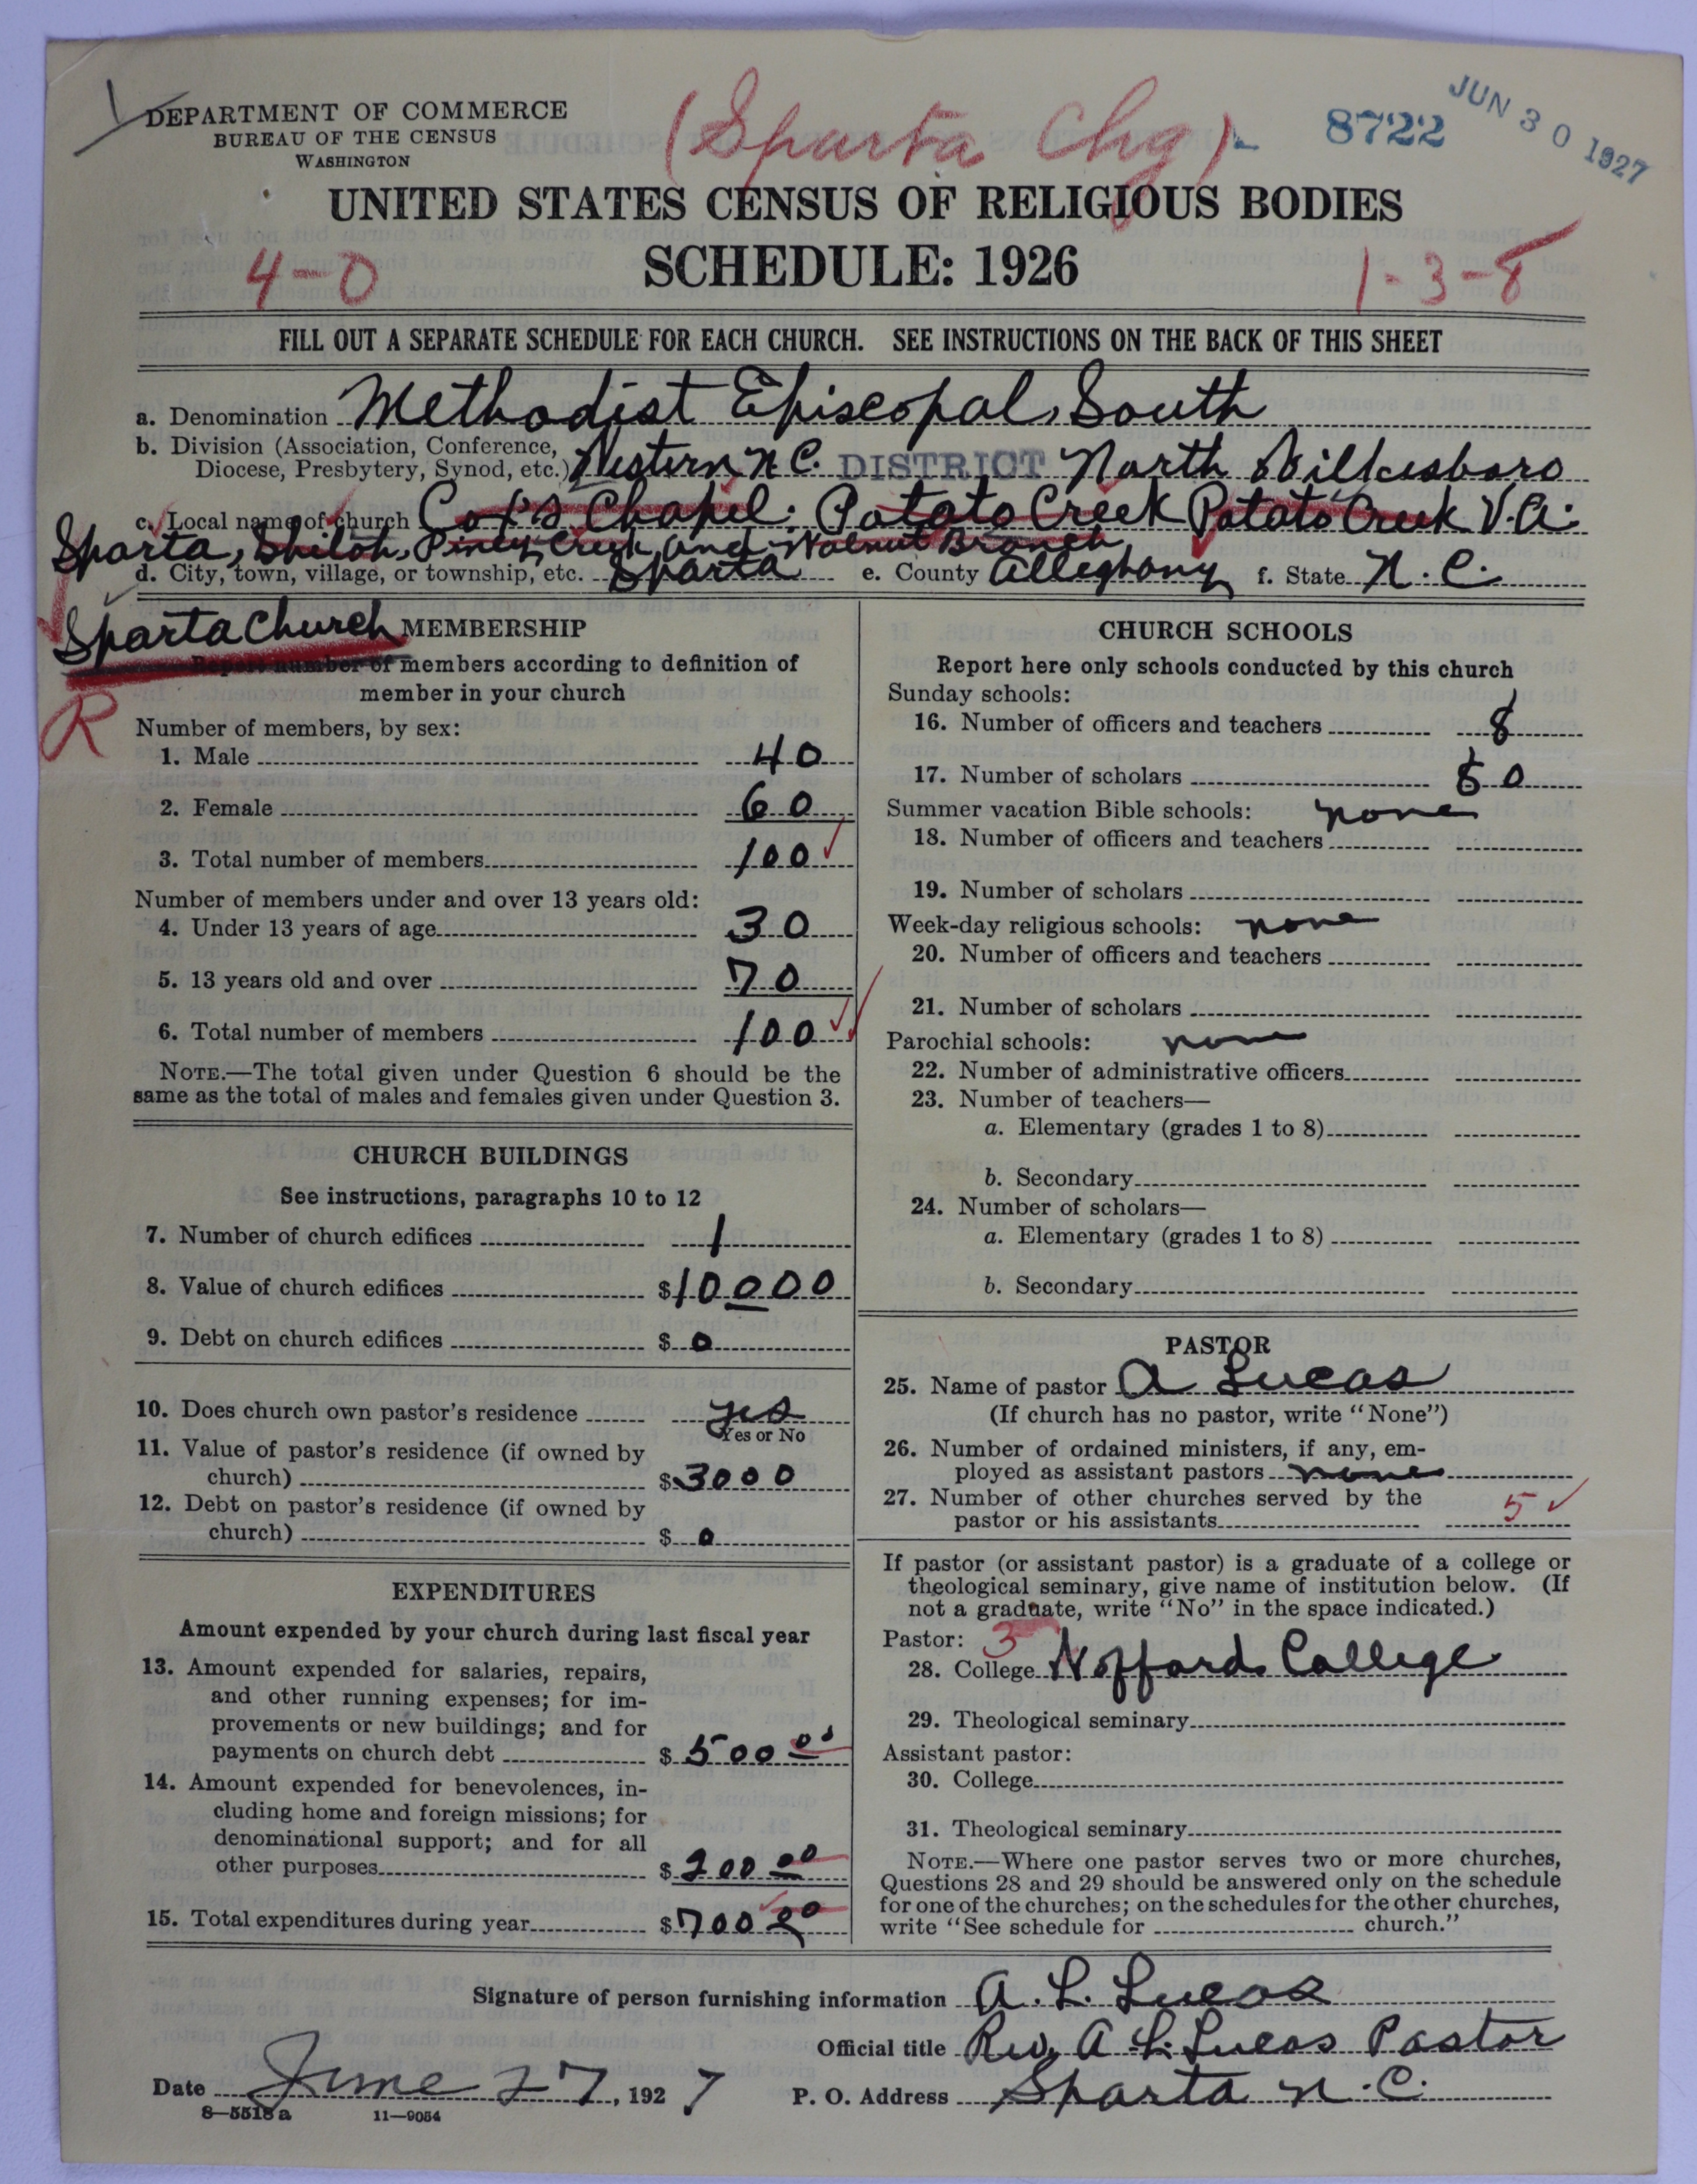 DEPARTMENT OF COMMERCE
BUREAU OF THE CENSUS
WASHINGTON
(Sparta Chg)
8722
JUN 30 1927
UNITED STATES CENSUS OF RELIGIOUS BODIES
SCHEDULE: 1926
4-0
1-3-8
FILL OUT A SEPARATE SCHEDULE FOR EACH CHURCH. SEE INSTRUCTIONS ON THE BACK OF THIS SHEET
a. Denomination Methodist Episcopal, South
b. Division (Association, Conference,
Diocese, Presbytery, Synod, etc.) Western N C. DISTRICT North Wilkesboro
c. Local name of church Cox's Chapel; Potato Creek Potato Creek V.A.
Sparta, Shiloh, Piney Creek and Walnut Branch
d. City, town, village, or township, etc. Sparta e. County Alleghany f. State N. C.
Sparta Church
R
MEMBERSHIP
Report number of members according to definition of
member in your church
Number of members, by sex:
1. Male 40
2. Female 60
3. Total number of members 100
Number of members under and over 13 years old:
4. Under 13 years of age 30
5. 13 years old and over 70
6. Total number of members 100
NOTE.—The total given under Question 6 should be the
same as the total of males and females given under Question 3.
CHURCH BUILDINGS
See instructions, paragraphs 10 to 12
7. Number of church edifices 1
8. Value of church edifices $10000
9. Debt on church edifices $ 0
10. Does church own pastor's residence yes
Yes or No
11. Value of pastor's residence (if owned by
church) $3000
12. Debt on pastor's residence (if owned by
church) $ 0
EXPENDITURES
Amount expended by your church during last fiscal year
13. Amount expended for salaries, repairs,
and other running expenses; for im-
provements or new buildings; and for
payments on church debt $ 500 00
14. Amount expended for benevolences, in-
cluding home and foreign missions; for
denominational support; and for all
other purposes $ 200 00
15. Total expenditures during year $700 00
CHURCH SCHOOLS
Report here only schools conducted by this church
Sunday schools:
16. Number of officers and teachers 8
17. Number of scholars 0
Summer vacation Bible schools: none
18. Number of officers and teachers
19. Number of scholars
Week-day religious schools: none
20. Number of officers and teachers
21. Number of scholars
Parochial schools: none
22. Number of administrative officers
23. Number of teachers—
a. Elementary (grades 1 to 8)
b. Secondary
24. Number of scholars—
a. Elementary (grades 1 to 8)
b. Secondary
PASTOR
25. Name of pastor A Lucas
(If church has no pastor, write "None")
26. Number of ordained ministers, if any, em-
ployed as assistant pastors none
27. Number of other churches served by the
pastor or his assistants 5
If pastor (or assistant pastor) is a graduate of a college or
theological seminary, give name of institution below. (If
not a graduate, write "No" in the space indicated.)
Pastor: 3
28. College Wofford College
29. Theological seminary
Assistant pastor:
30. College
31. Theological seminary
NOTE.—Where one pastor serves two or more churches,
Questions 28 and 29 should be answered only on the schedule
for one of the churches; on the schedules for the other churches,
write "See schedule for church."
Signature of person furnishing information A. L. Lucas
Official title Rev. A. L. Lucas Pastor
Date June 27, 1927 P. O. Address Sparta N. C.
8—5518 a 11—9054